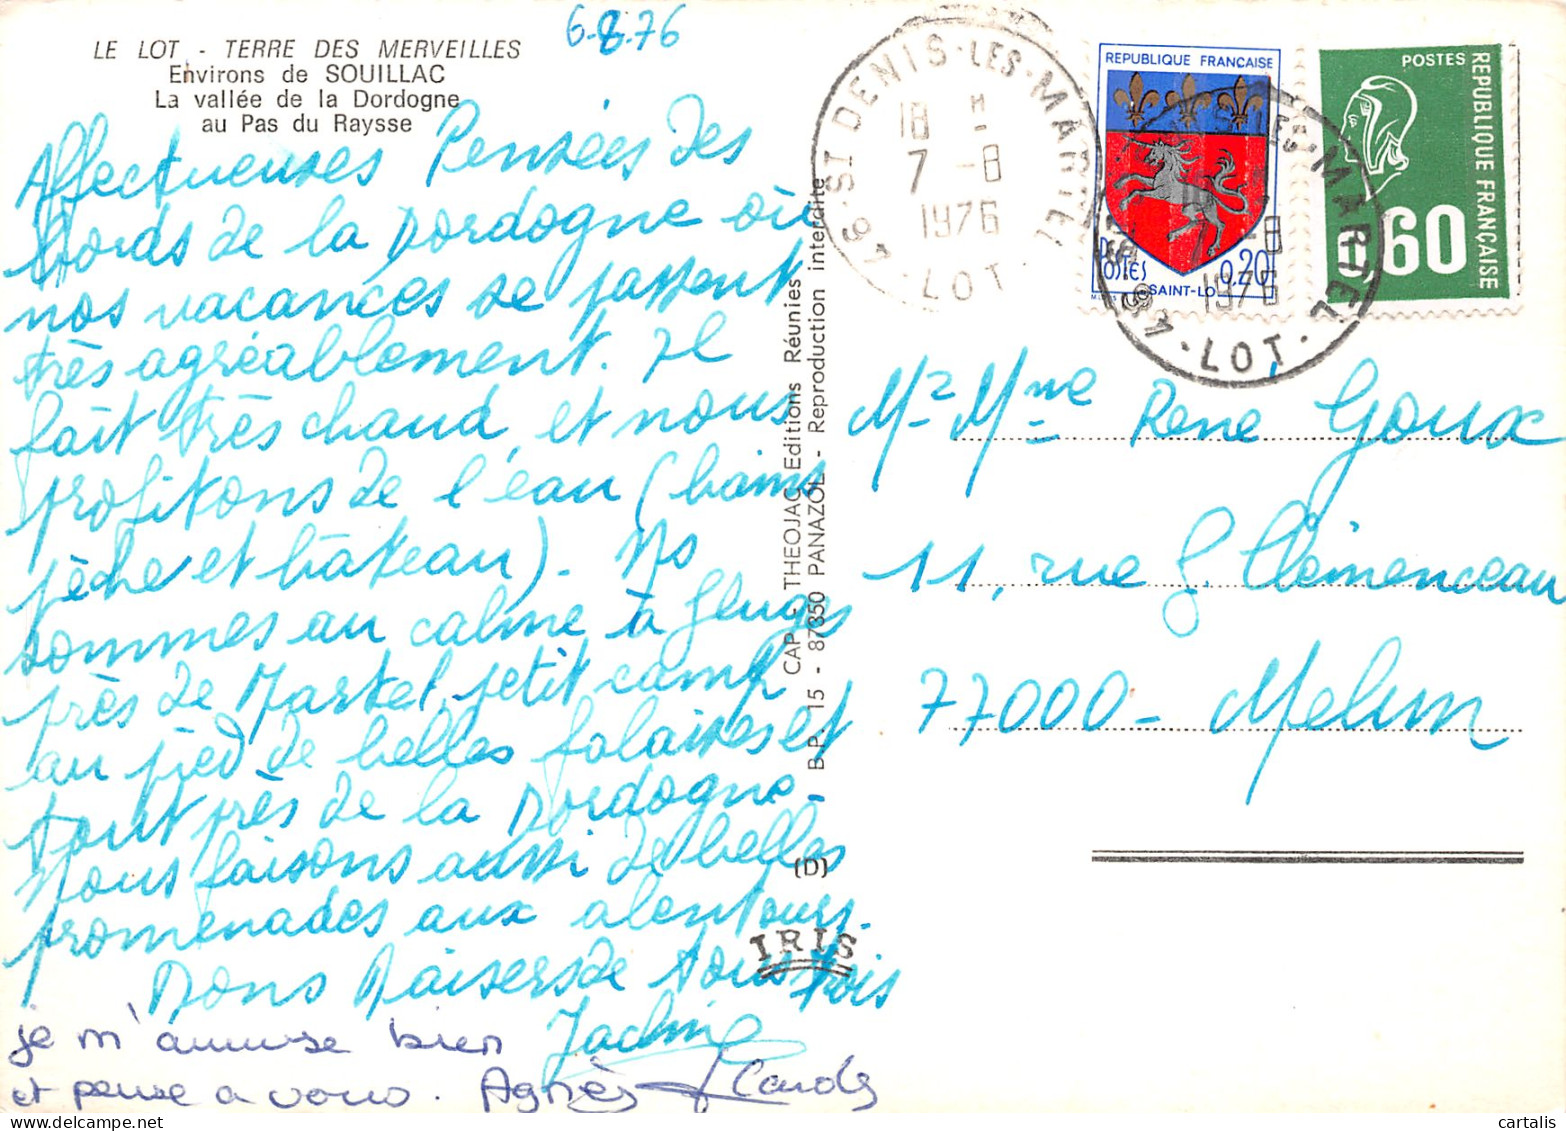 6-8-76
LE LOT - TERRE DES MERVEILLES
Environs de SOUILLAC
La vallée de la Dordogne
au Pas du Raysse
Affectueuses Pensées des
bords de la Dordogne où
nos vacances se passent
très agréablement. Il
fait très chaud, et nous
profitons de l'eau (bains
pêche et bâteau). Ns
sommes au calme à Gluges
près de Martel, petit camp
au pied de belles falaises et
tout près de la Dordogne.
Nous faisons aussi de belles
promenades aux alentours.
Bons Baisers de tous trois
Jacline
je m'amuse bien
et pense a vous. Agnès Claude
CAP - THEOJAC Editions Réunies
B.P. 15 - 87350 PANAZOL - Reproduction interdite
(D)
IRIS
46 ST DENIS-LES-MARTEL
18 H
7 -8
1976
LOT
REPUBLIQUE FRANÇAISE
POSTES
0,20
SAINT-LO
POSTES
REPUBLIQUE FRANÇAISE
0,60
LES-MARTEL
-8
1976
46
LOT
Mr Mme René Goux
11, rue G. Clémenceau
77000 - Melun
cartalis